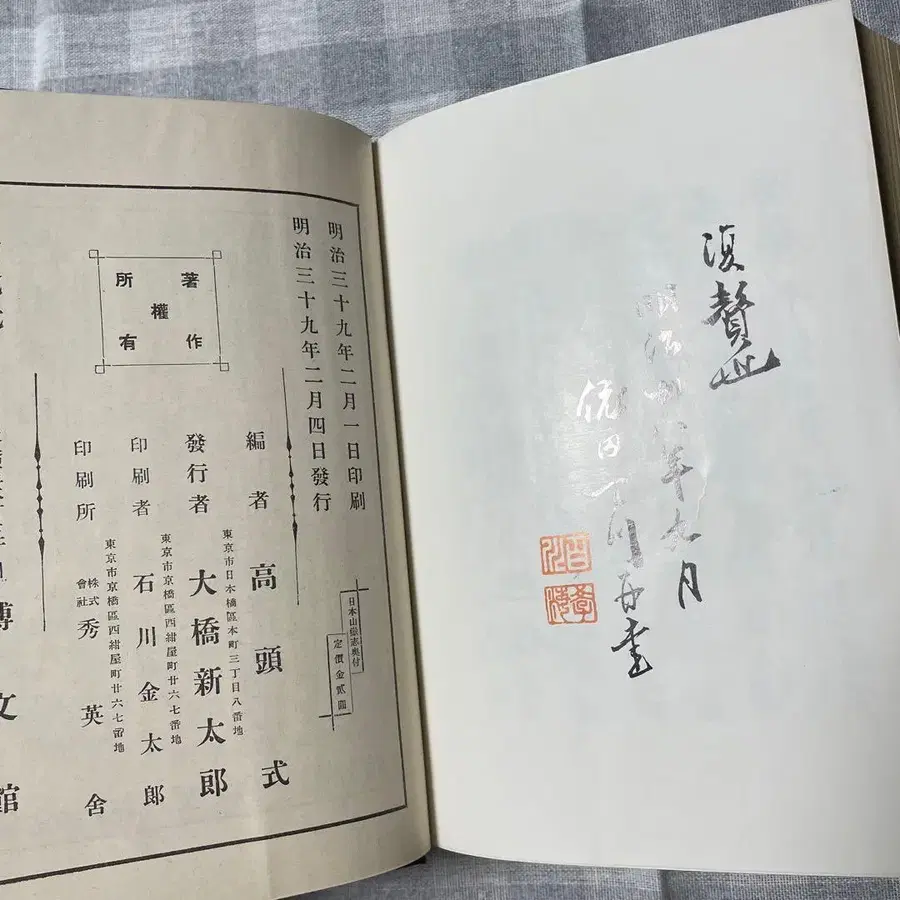 復贅
明治卅八年九月
依田百川再書
百川
學海
明治三十九年二月一日印刷
明治三十九年二月四日發行
日本山嶽志奧付
定價金貳圓
著作
權
所有
編者 高頭式
東京市日本橋區本町三丁目八番地
發行者 大橋新太郎
東京市京橋區西紺屋町廿六七番地
印刷者 石川金太郎
東京市京橋區西紺屋町廿六七番地
印刷所 株式會社 秀英舍
博文館